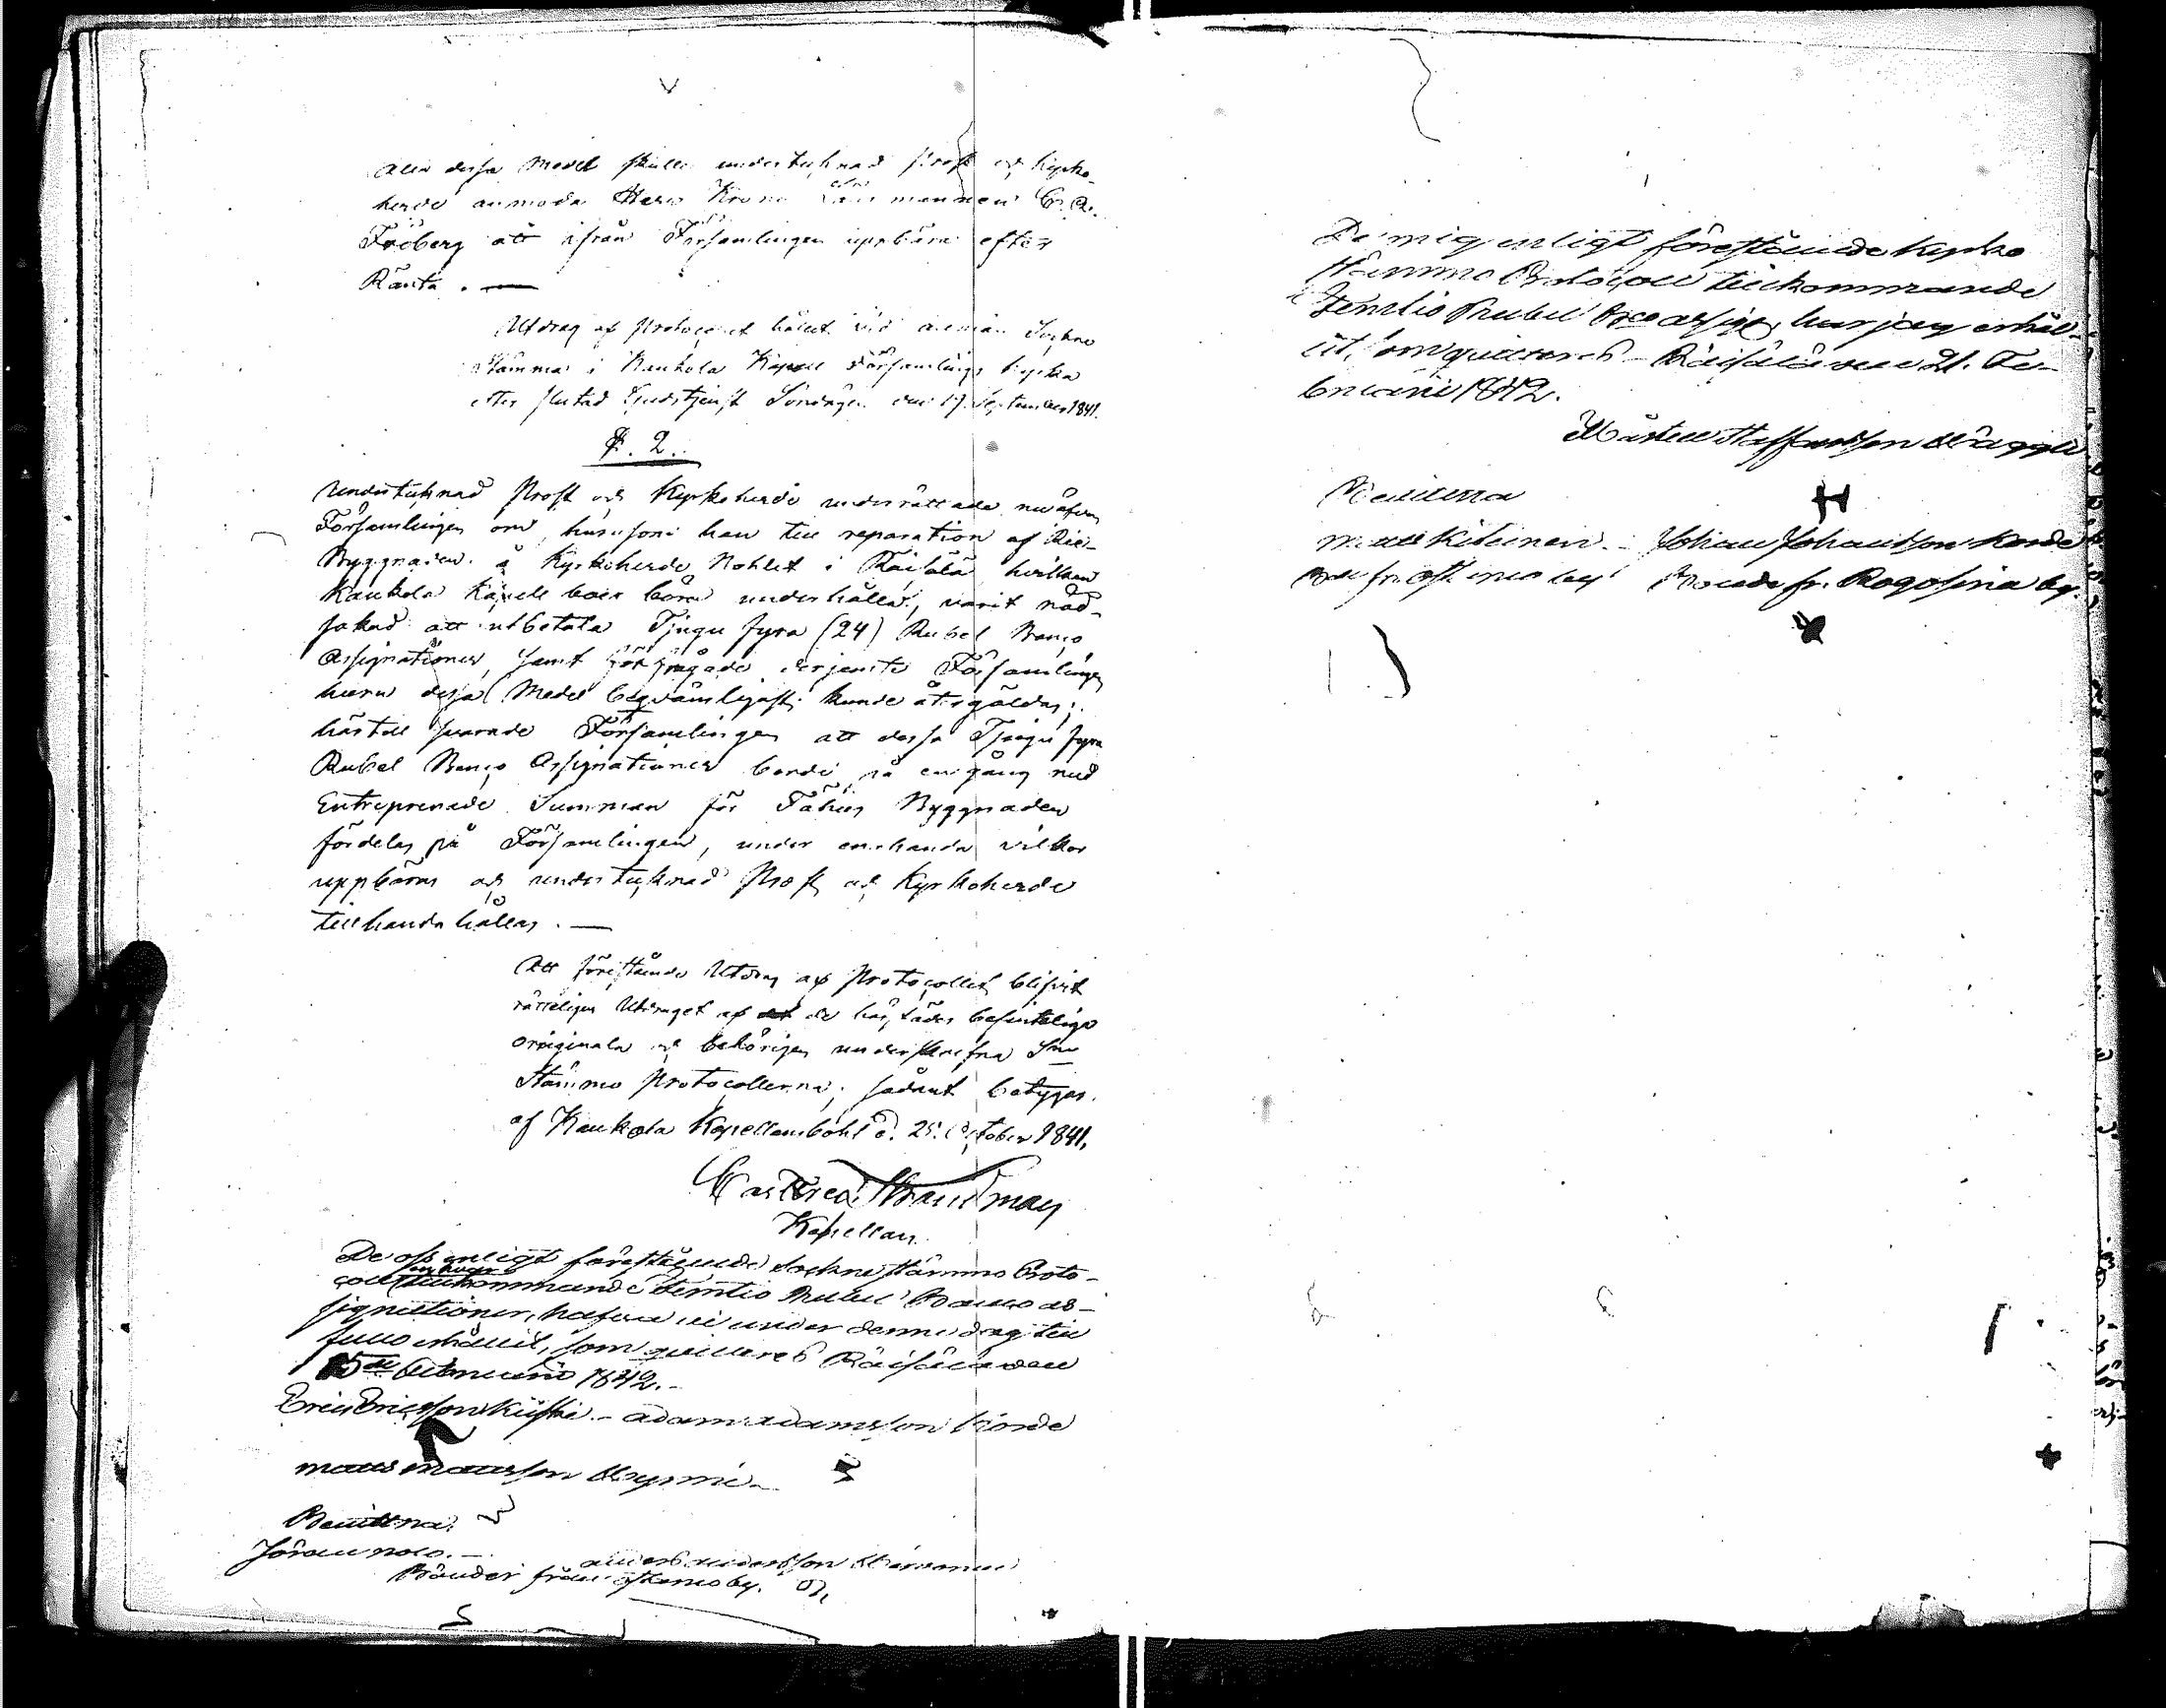 alla dessa Medel skulle undertecknad Prost och Kyrko-
herde anmoda Herr Krono Länsmannen C. A.
Fröberg att ifrån Församlingen uppbära efter
Ränta. —
Utdrag af Protocollet hållet vid allmän Sockne
Stämma i Kaukola Kapell Församlings Kyrka
efter slutad Gudstjenst Söndagen den 19. September 1841.
§. 2.
Undertecknad Prost och Kyrkoherde underrättade nu äfven
Församlingen om, hurusom han till reparation af Rie-
Byggnaden å Kyrkoherde Bohlet i Räisälä hvilken
Kaukola Kapell boer böra underhålla, varit nöd-
sakad att utbetala Tjugu fyra (24) Rubel Banco
Assignationer, samt förfrågade derjemte Församlingen
huru dessa Medel beqvämligast kunde återgäldas;
härtill svarade Församlingen att dessa Tjugu fyra
Rubel Banco Assignationer borde på en gång med
Entreprenade Summan för Fähus Byggnaden
fördelas på Församlingen, under enahanda vilkor
uppbäras och undertecknad Prost och Kyrkoherde
tillhanda hållas. —
Att förestående Utdrag af Protocollet blifvit
rätteligen Utdraget af de härstädes befinteliga
originala och behörigen underskrefna Sne
Stämmo Protocollerna; sådant betygar.
af Kaukola Kapellansbohl d. 25. October 1841.
Carl Fred. Strandman
Kapellan.
De oss enligt föreståenude Sockne stämmo Proto-
coll tillkommande femtio Rubel Banco as-
signationer, hafva vi under denna dag till
fullo erhållit, som quitteras Räisälä den
Februarii 1842.-
Eric Ericsson Kiiski.- Adam Adamsson
Matts Mattsson
Bevittna.
Jöran
Anders Andersson
Bönder från by.
De mig enligt föreståeunde Kyrko
Stämmo Protocoll tillkommande
Femtio Rubel Bco assign, har jag erhål-
lit, som quitteras - Räisälä den 21. Fe-
bruarii 1842.
Mårten Staffansson
Bevittna
Matts Johan Johansson
Bonde fr. by Bonde fr. Rogosina by.